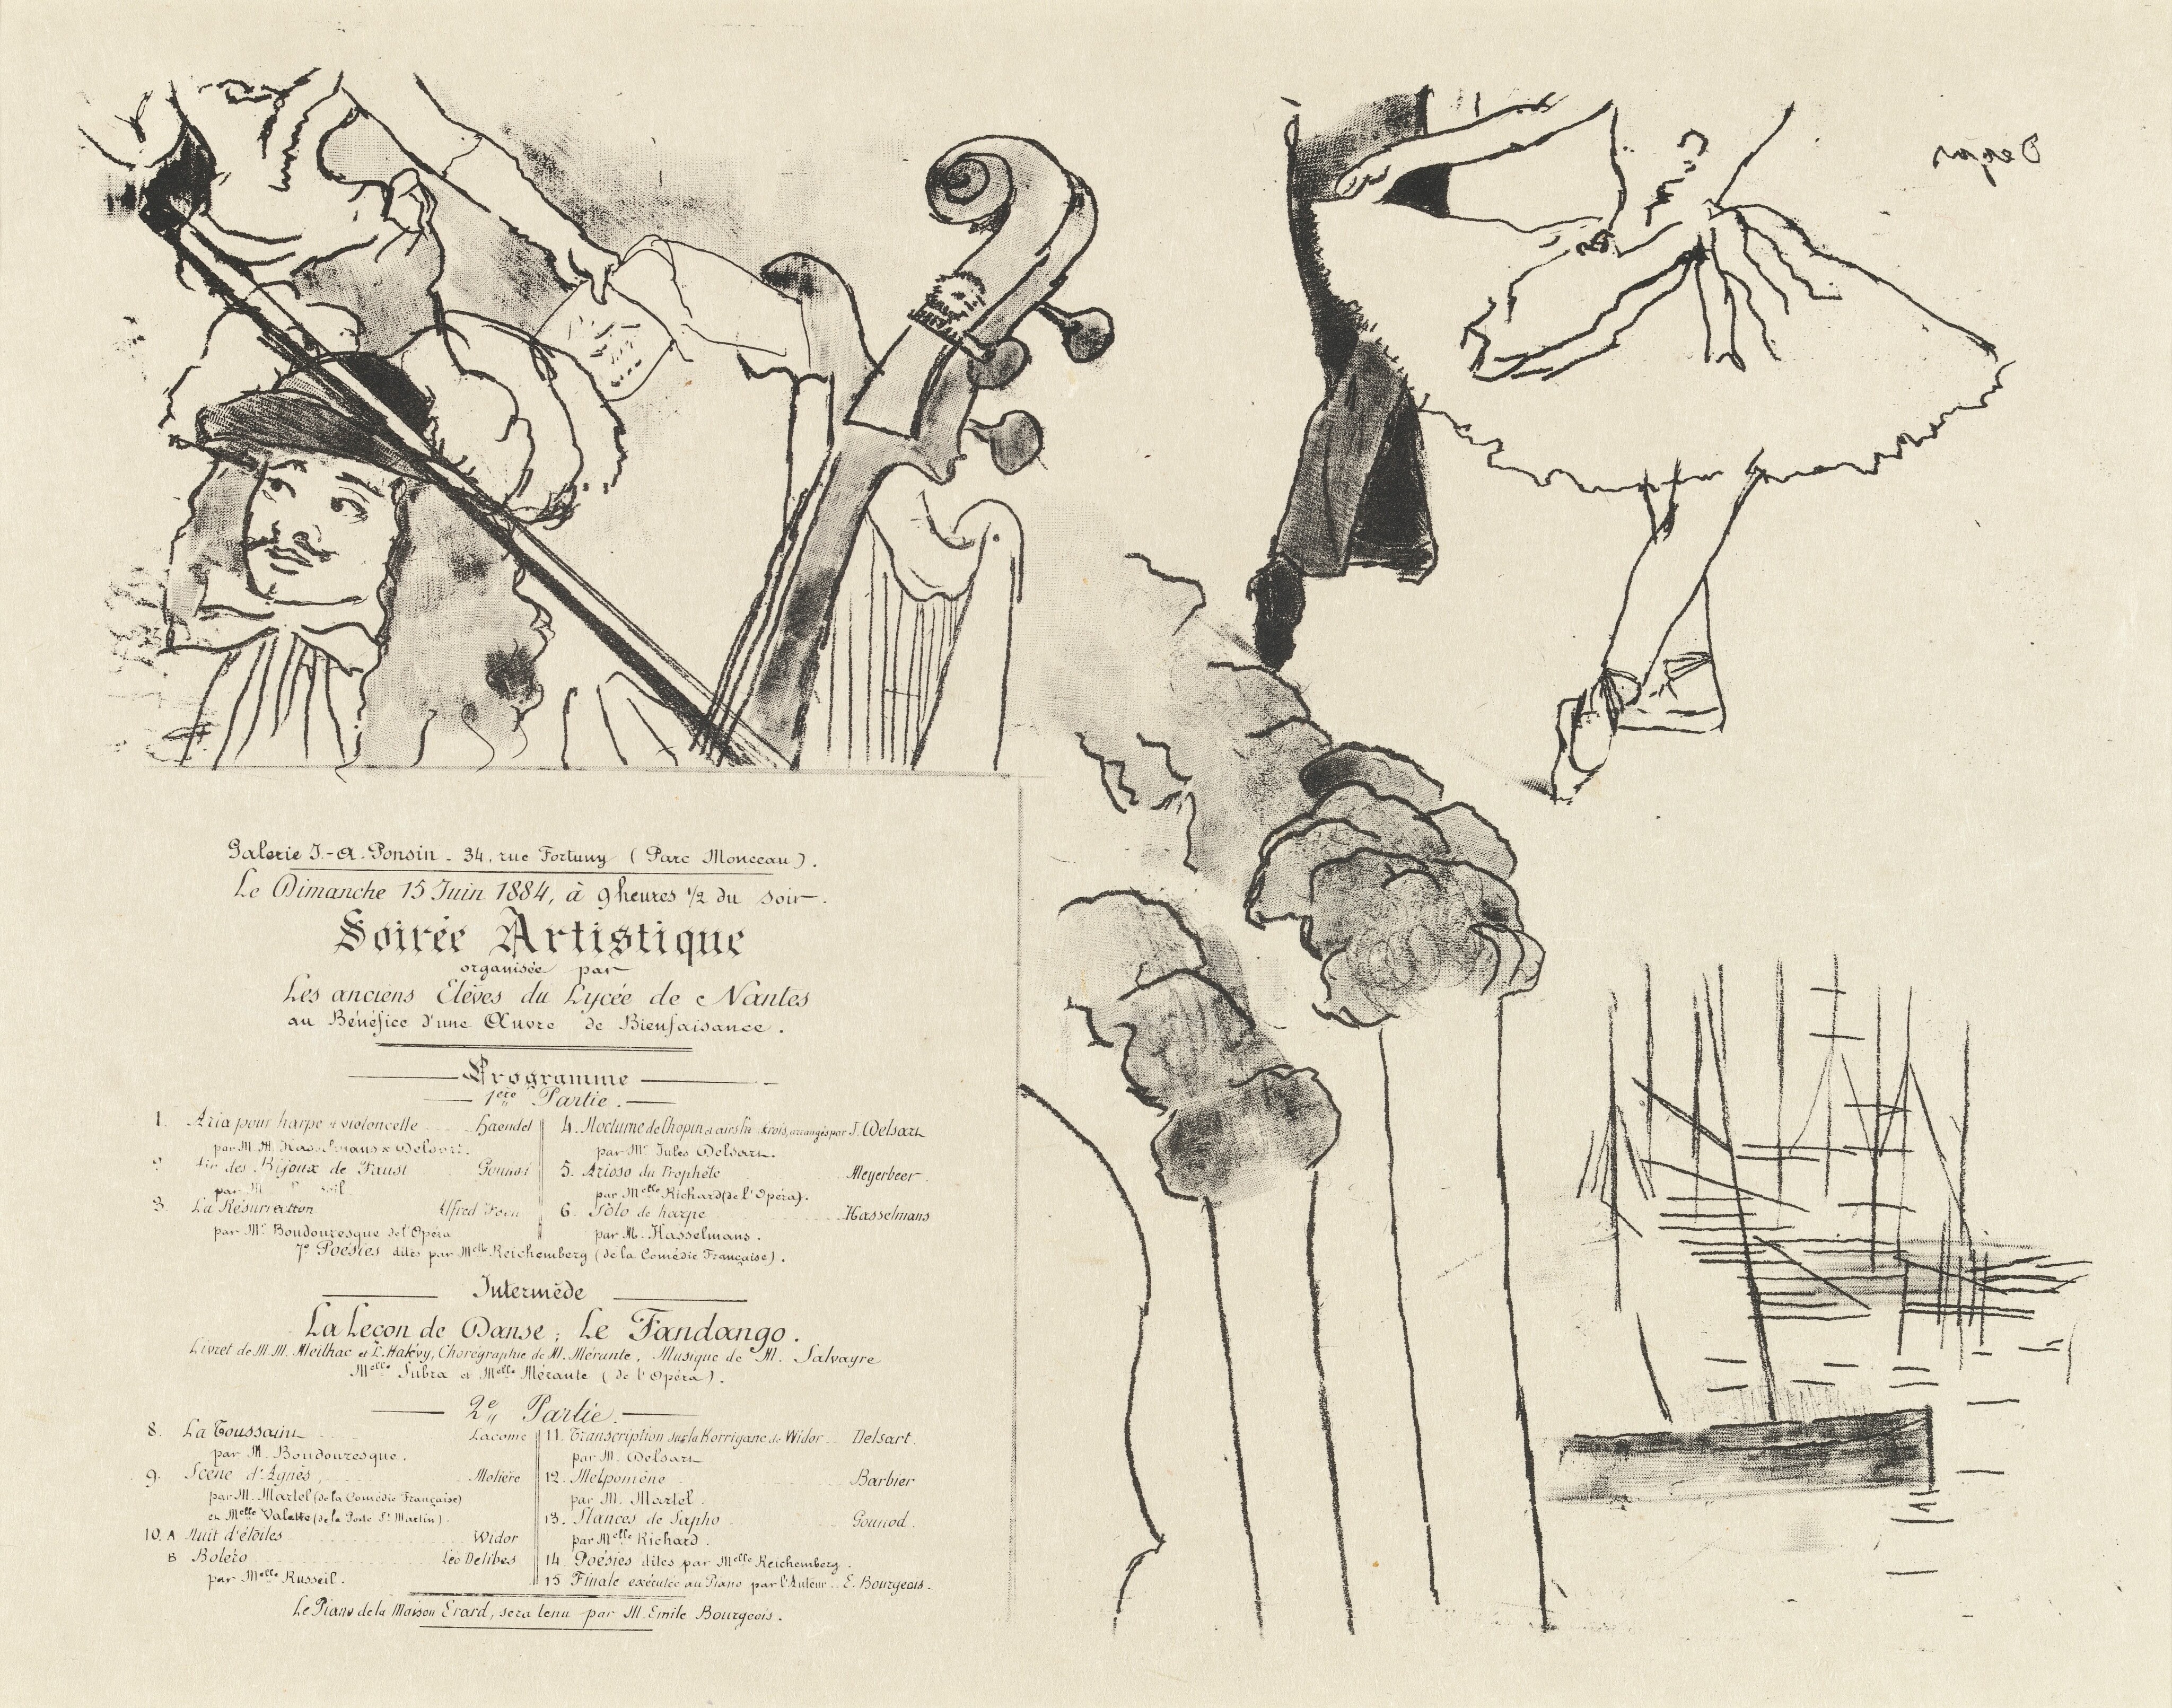 Degas
Galerie J.-A. Ponsin - 34, rue Fortuny (Parc Monceau).
Le Dimanche 15 Juin 1884, à 9 heures 1/2 du soir.
Soirée Artistique
organisée par
Les anciens Elèves du Lycée de Nantes
au Bénéfice d'une Œuvre de Bienfaisance.
Programme
1ère Partie.
1. Aria pour harpe et violoncelle Haendel
par M.M. Hasselmans & Delsart.
2. Air des Bijoux de Faust Gounod
par M
3. La Résurrection Alfred
par Mr Boudouresque de l'Opéra
4. Nocturne de Chopin et airs arrangés par J. Delsart
par Mr Jules Delsart.
5. Arioso du Prophète Meyerbeer
par Melle Richard (de l'Opéra).
6. Solo de harpe Hasselmans
par M. Hasselmans.
7º Poésies dites par Melle Reichemberg (de la Comédie Française).
Intermède
La Leçon de Danse; Le Fandango.
Livret de M.M. Meilhac et L. Halévy, Chorégraphie de M. Mérante, Musique de M. Salvayre
Melle Subra et Melle Mérante (de l'Opéra).
2e Partie.
8. La Toussaint Lacome
par M. Boudouresque.
9. Scène d'Agnès Molière
par M. Martel (de la Comédie Française)
et Melle Valette (de la Porte St Martin).
10. A Nuit d'étoiles Widor
B Boléro Léo Delibes
par Melle Russeil.
11. Transcription sur la Korrigane de Widor Delsart.
par M. Delsart
12. Melpomène Barbier
par M. Martel.
13. Stances de Sapho Gounod.
par Melle Richard.
14 Poésies dites par Melle Reichemberg.
15 Finale exécutée au Piano par l'Auteur E. Bourgeois.
Le Piano de la Maison Erard, sera tenu par M. Emile Bourgeois.